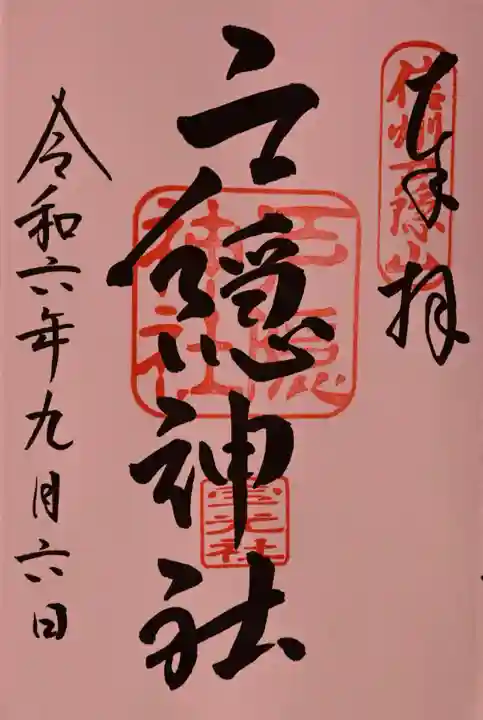 奉拝
信州戸隠山
戸隠神社
戸隠
神社
宝光社
令和六年九月六日